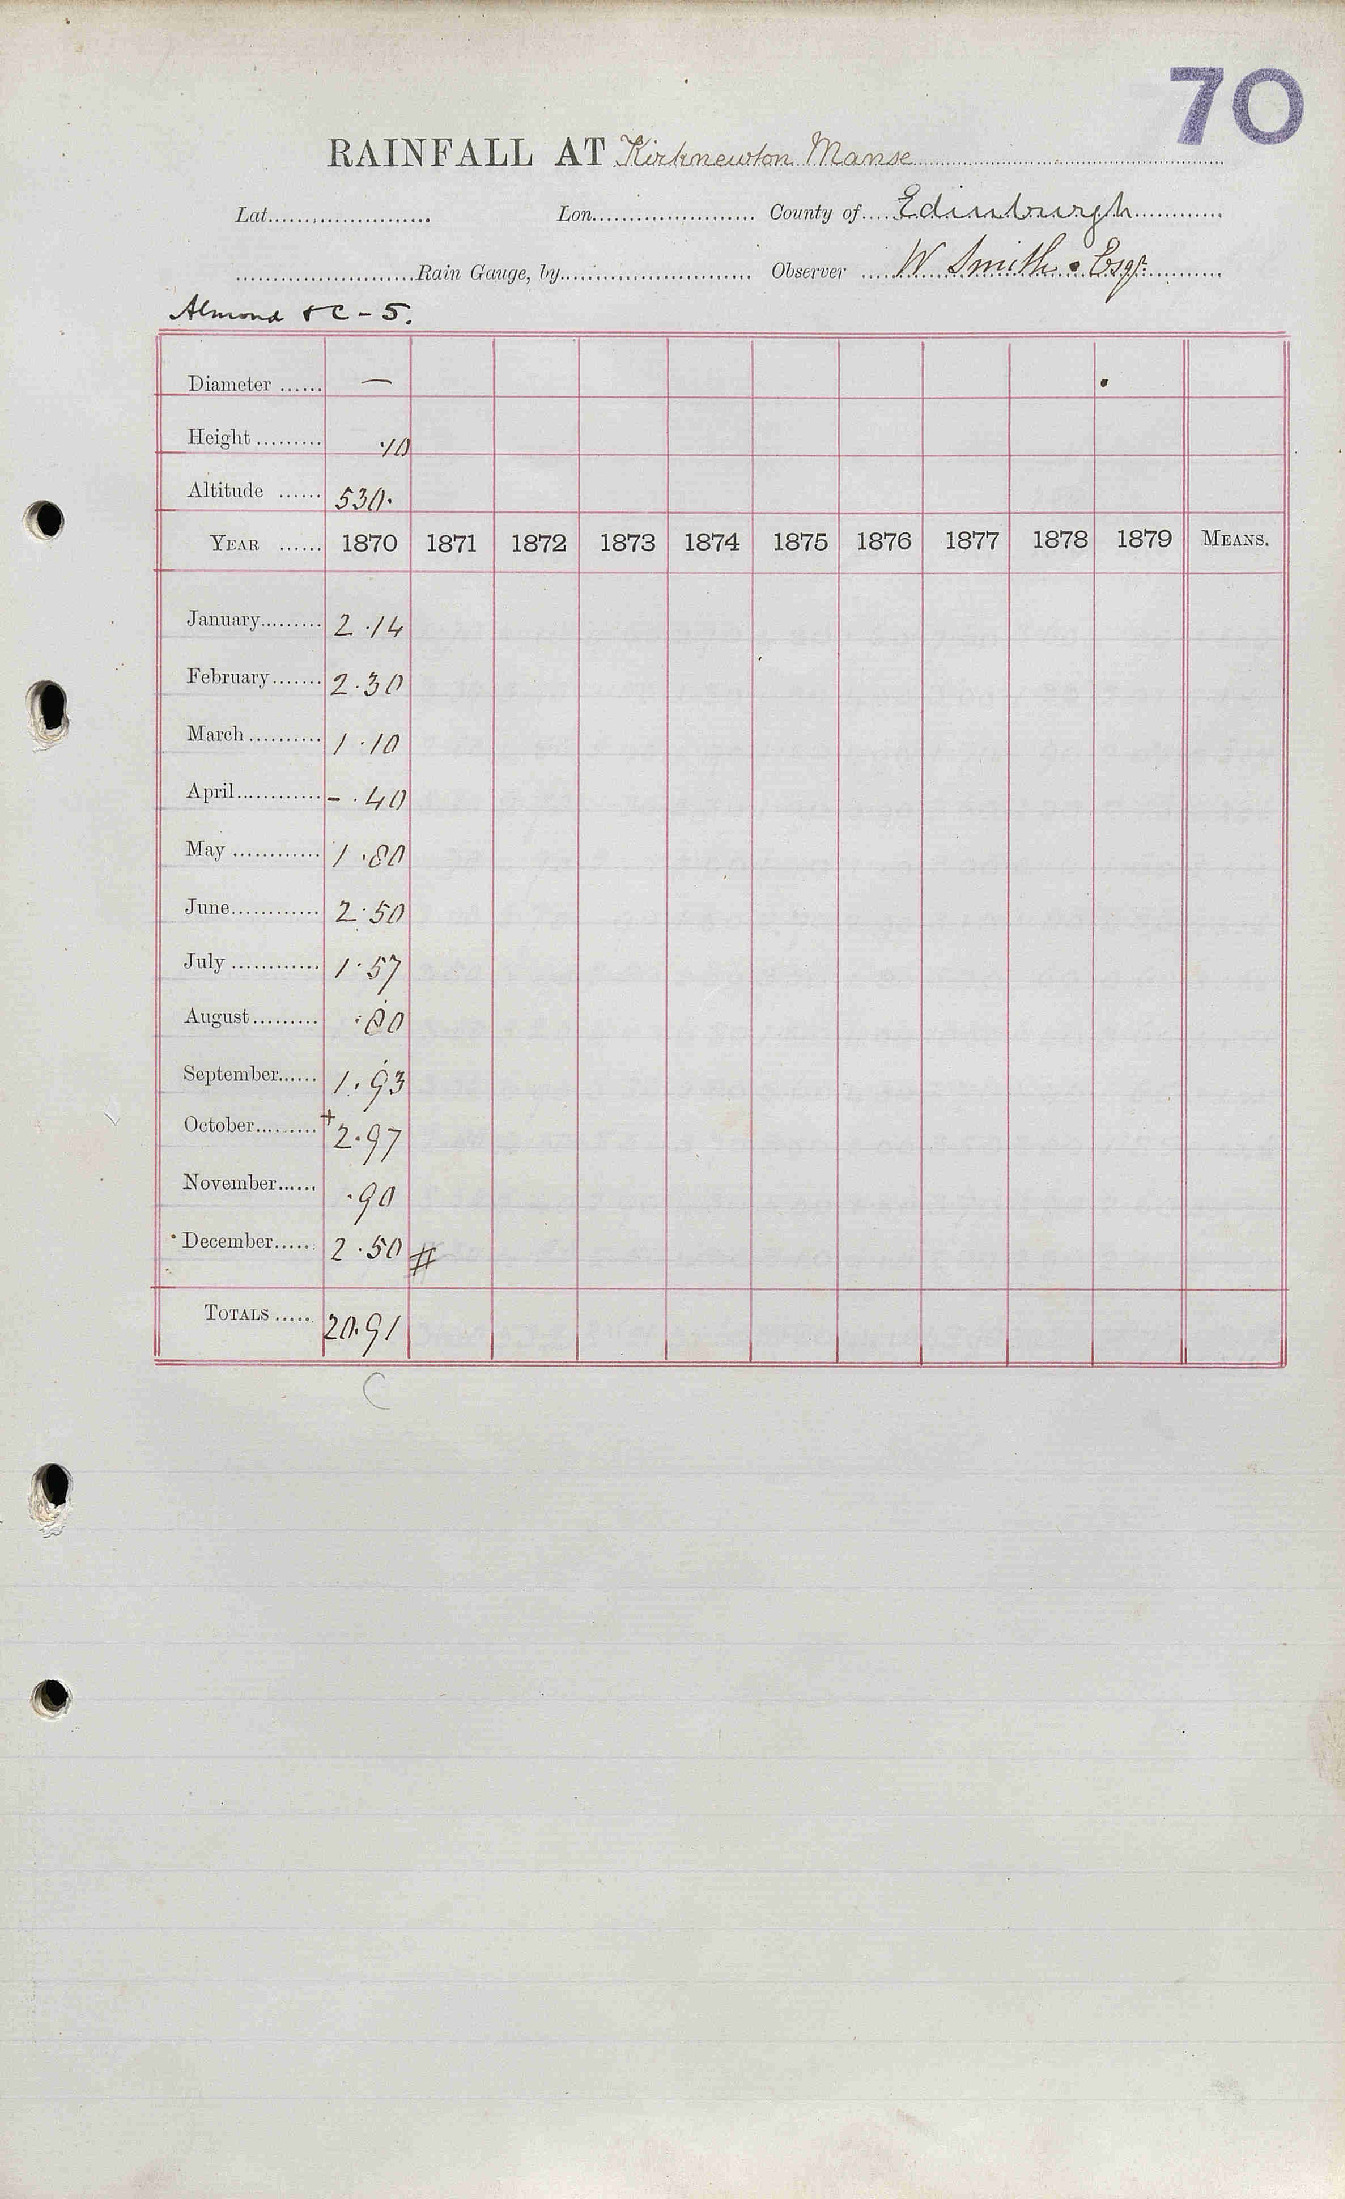 70
RAINFALL AT Kirknewton Manse
Lat...................... Lon...................... County of.... Edinburgh............
........................Rain Gauge, by......................... Observer .... W Smith. Esqr.
Almond & C - 5.
Diameter ...... —
Height .........
Altitude ...... 530.
YEAR ...... 1870 1871 1872 1873 1874 1875 1876 1877 1878 1879 MEANS.
January......... 2.14
February....... 2.30
March .......... 1.10
April............ - .40
May ............ 1.80
June............ 2.50
July ............ 1.57
August......... .80
September...... 1.93
October......... + 2.97
November...... .90
December..... 2.50 #
TOTALS ..... 20.91
C